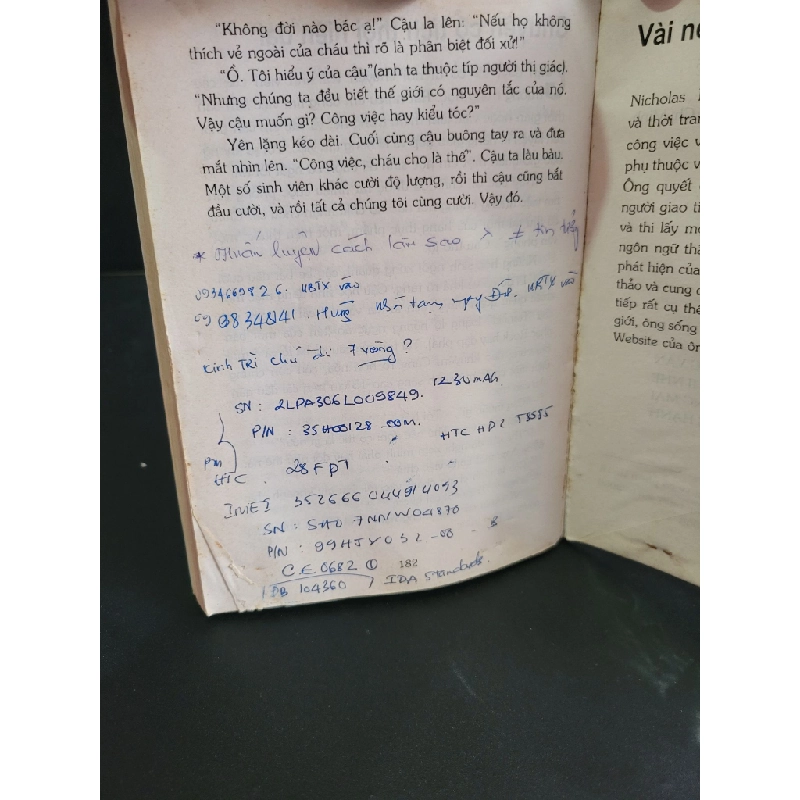 "Không đời nào bác ạ!" Cậu la lên: "Nếu họ không
thích vẻ ngoài của cháu thì rõ là phân biệt đối xử!"
"Ồ. Tôi hiểu ý của cậu"(anh ta thuộc típ người thị giác).
"Nhưng chúng ta đều biết thế giới có nguyên tắc của nó.
Vậy cậu muốn gì? Công việc hay kiểu tóc?"
Yên lặng kéo dài. Cuối cùng cậu buông tay ra và đưa
mắt nhìn lên. "Công việc, cháu cho là thế". Cậu ta làu bàu.
Một số sinh viên khác cười độ lượng, rồi thì cậu cũng bắt
đầu cười, và rồi tất cả chúng tôi cùng cười. Vậy đó.
* Huấn luyện cách làm sao
0934669826. vào
Hưng
7 vòng?
SN: 2LPA306L005849. 1230mAh
P/N: 35H00128
HTC HD2 T8585
Pin
HTC. 28FPT
352666044914053
SN: 7NNW04870
P/N: 99HJY032-00
C.E.0682
IDB 104360 / IDA Standards.
182
Vài n
Nicholas
và thời tran
công việc v
phụ thuộc v
Ông quyết
người giao ti
và thi lấy mo
ngôn ngữ thà
phát hiện của
thảo và cung c
tiếp rất cụ thể
giới, ông sống
Website của ôn